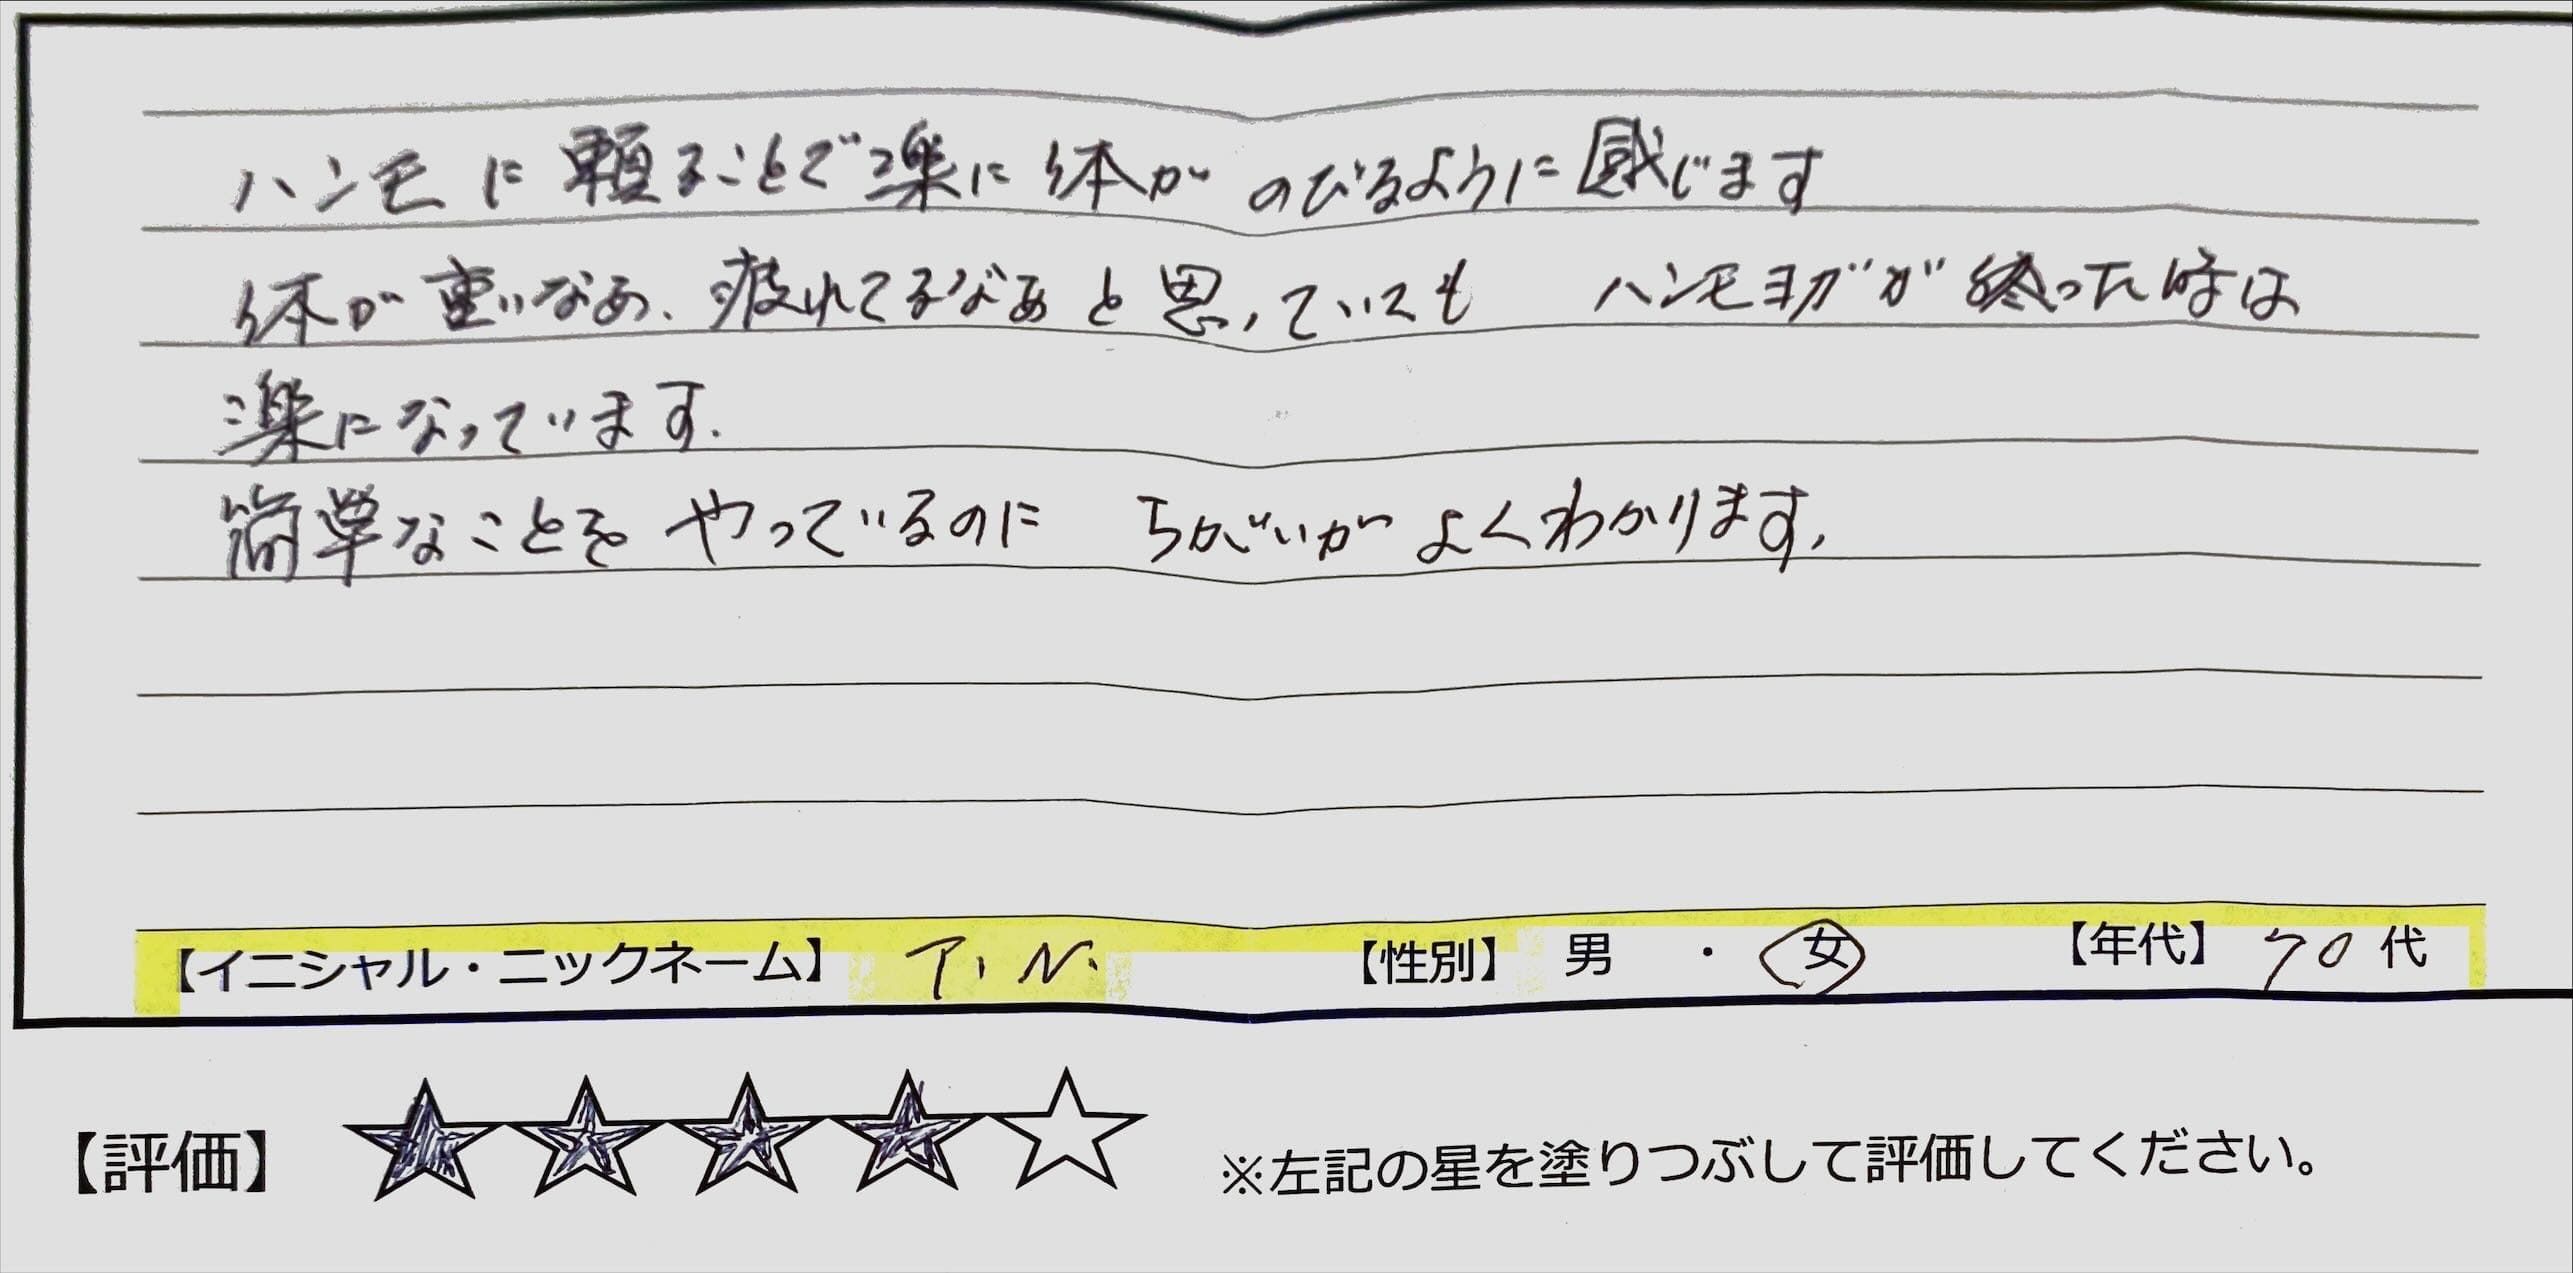 ハンモに頼ることで楽に体がのびるように感じます
体が重いなあ、疲れてるなあと思っていても ハンモヨガが終った時は
楽になっています。
簡単なことをやっているのに ちがいがよくわかります。
【イニシャル・ニックネーム】 T.N. 【性別】 男 ・ 女 【年代】 70代
【評価】 ★★★★☆ ※左記の星を塗りつぶして評価してください。